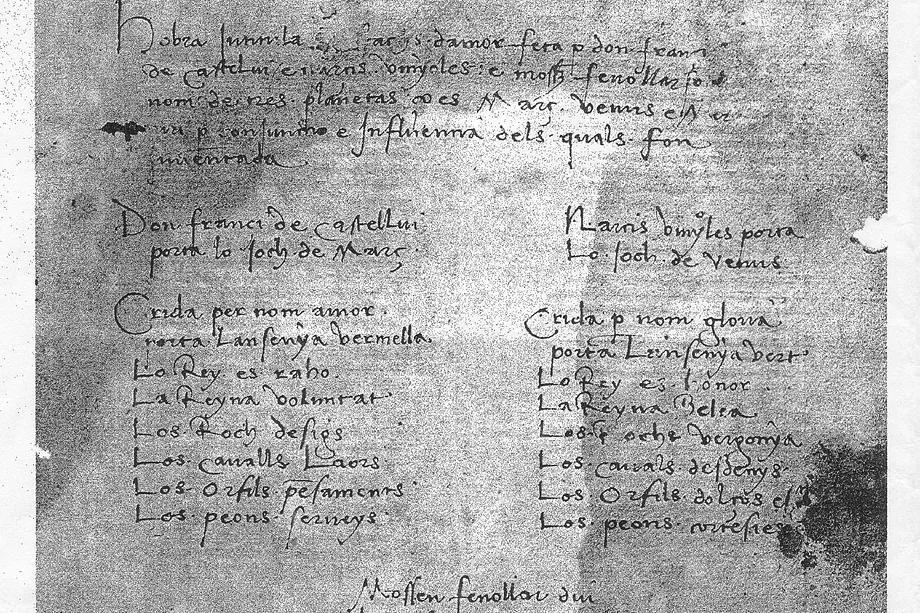 hobra Intitulada scachs damor feta p don franci
de Castelvi e narcis vinyoles e mossn fenollar so
nom de tres planetas ço es Març venus e M
uri p conjunctio e Influencia dels quals fon
inventada
Don franci de Castellvi
porta lo Joch de Març
Crida per nom amor
porta Lansenya vermella
Lo Rey es raho
La Reyna voluntat
Los Roch desigs
Los cavalls Laors
Los Orfils pesaments
Los peons serveys
Narcis vinyoles porta
Lo Joch de venus
Crida p nom gloria
porta Lansenya vert
Lo Rey es honor
La Reyna Belea
Los Rochs vergonya
Los cavals desdenys
Los Orfils dolços
Los peons cortesies
Mossen fenollar diu